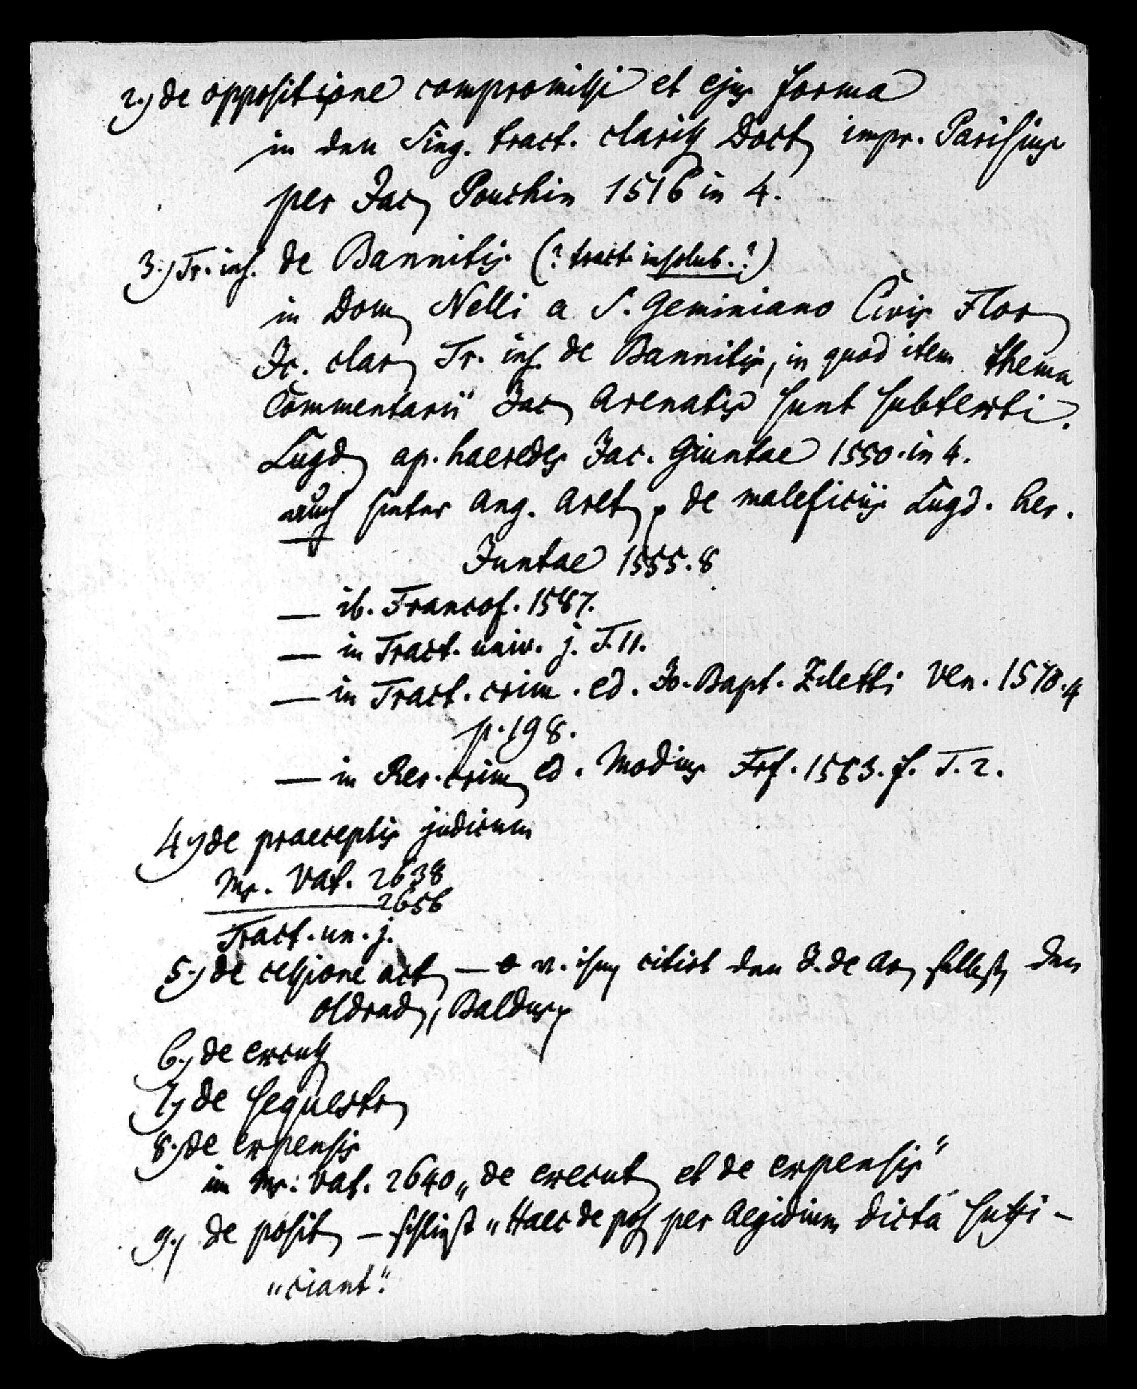 2.) de oppositione compromissi et ejus forma
in den Sing. tract. clariss Doct impr. Parisius
per Jac Pouchin 1516 in 4.
3.) Tr. ins. de Bannitis (? tract. insolub. ?)
in Dom Nelli a S. Geminiano Civis Flor
Jc. clar Tr. ins. de Bannitis, in quod item thema
Commentarii Jac Arenatis sunt subtexti.
Lugd ap. haeredes Jac. Giuntae 1550. in 4.
auch hinter Ang. Aret de maleficiis Lugd. her.
Juntae 1555. 8
— ib. Francof. 1587.
— in Tract. univ. j. T. 11.
— in Tract. crim. ed. Jo. Bapt. Ziletti Ven. 1570. 4
p. 198.
— in Rer. crim ed. Modius Frf. 1583. f. T. 2.
4) de praeceptis judicum
Ms. Vat. 2638
2656
Tract. un. j.
5.) de cessione act — v. ihm citirt den J. de Ar selbst den
Oldrad, Baldus
6.) de excuss
7) de sequestr
8.) de expensis
im Ms. Vat. 2640 „de execut et de expensis"
9.) de posit — schließt „Haec de pos per Aegidium dicta suffi-
„ciant".